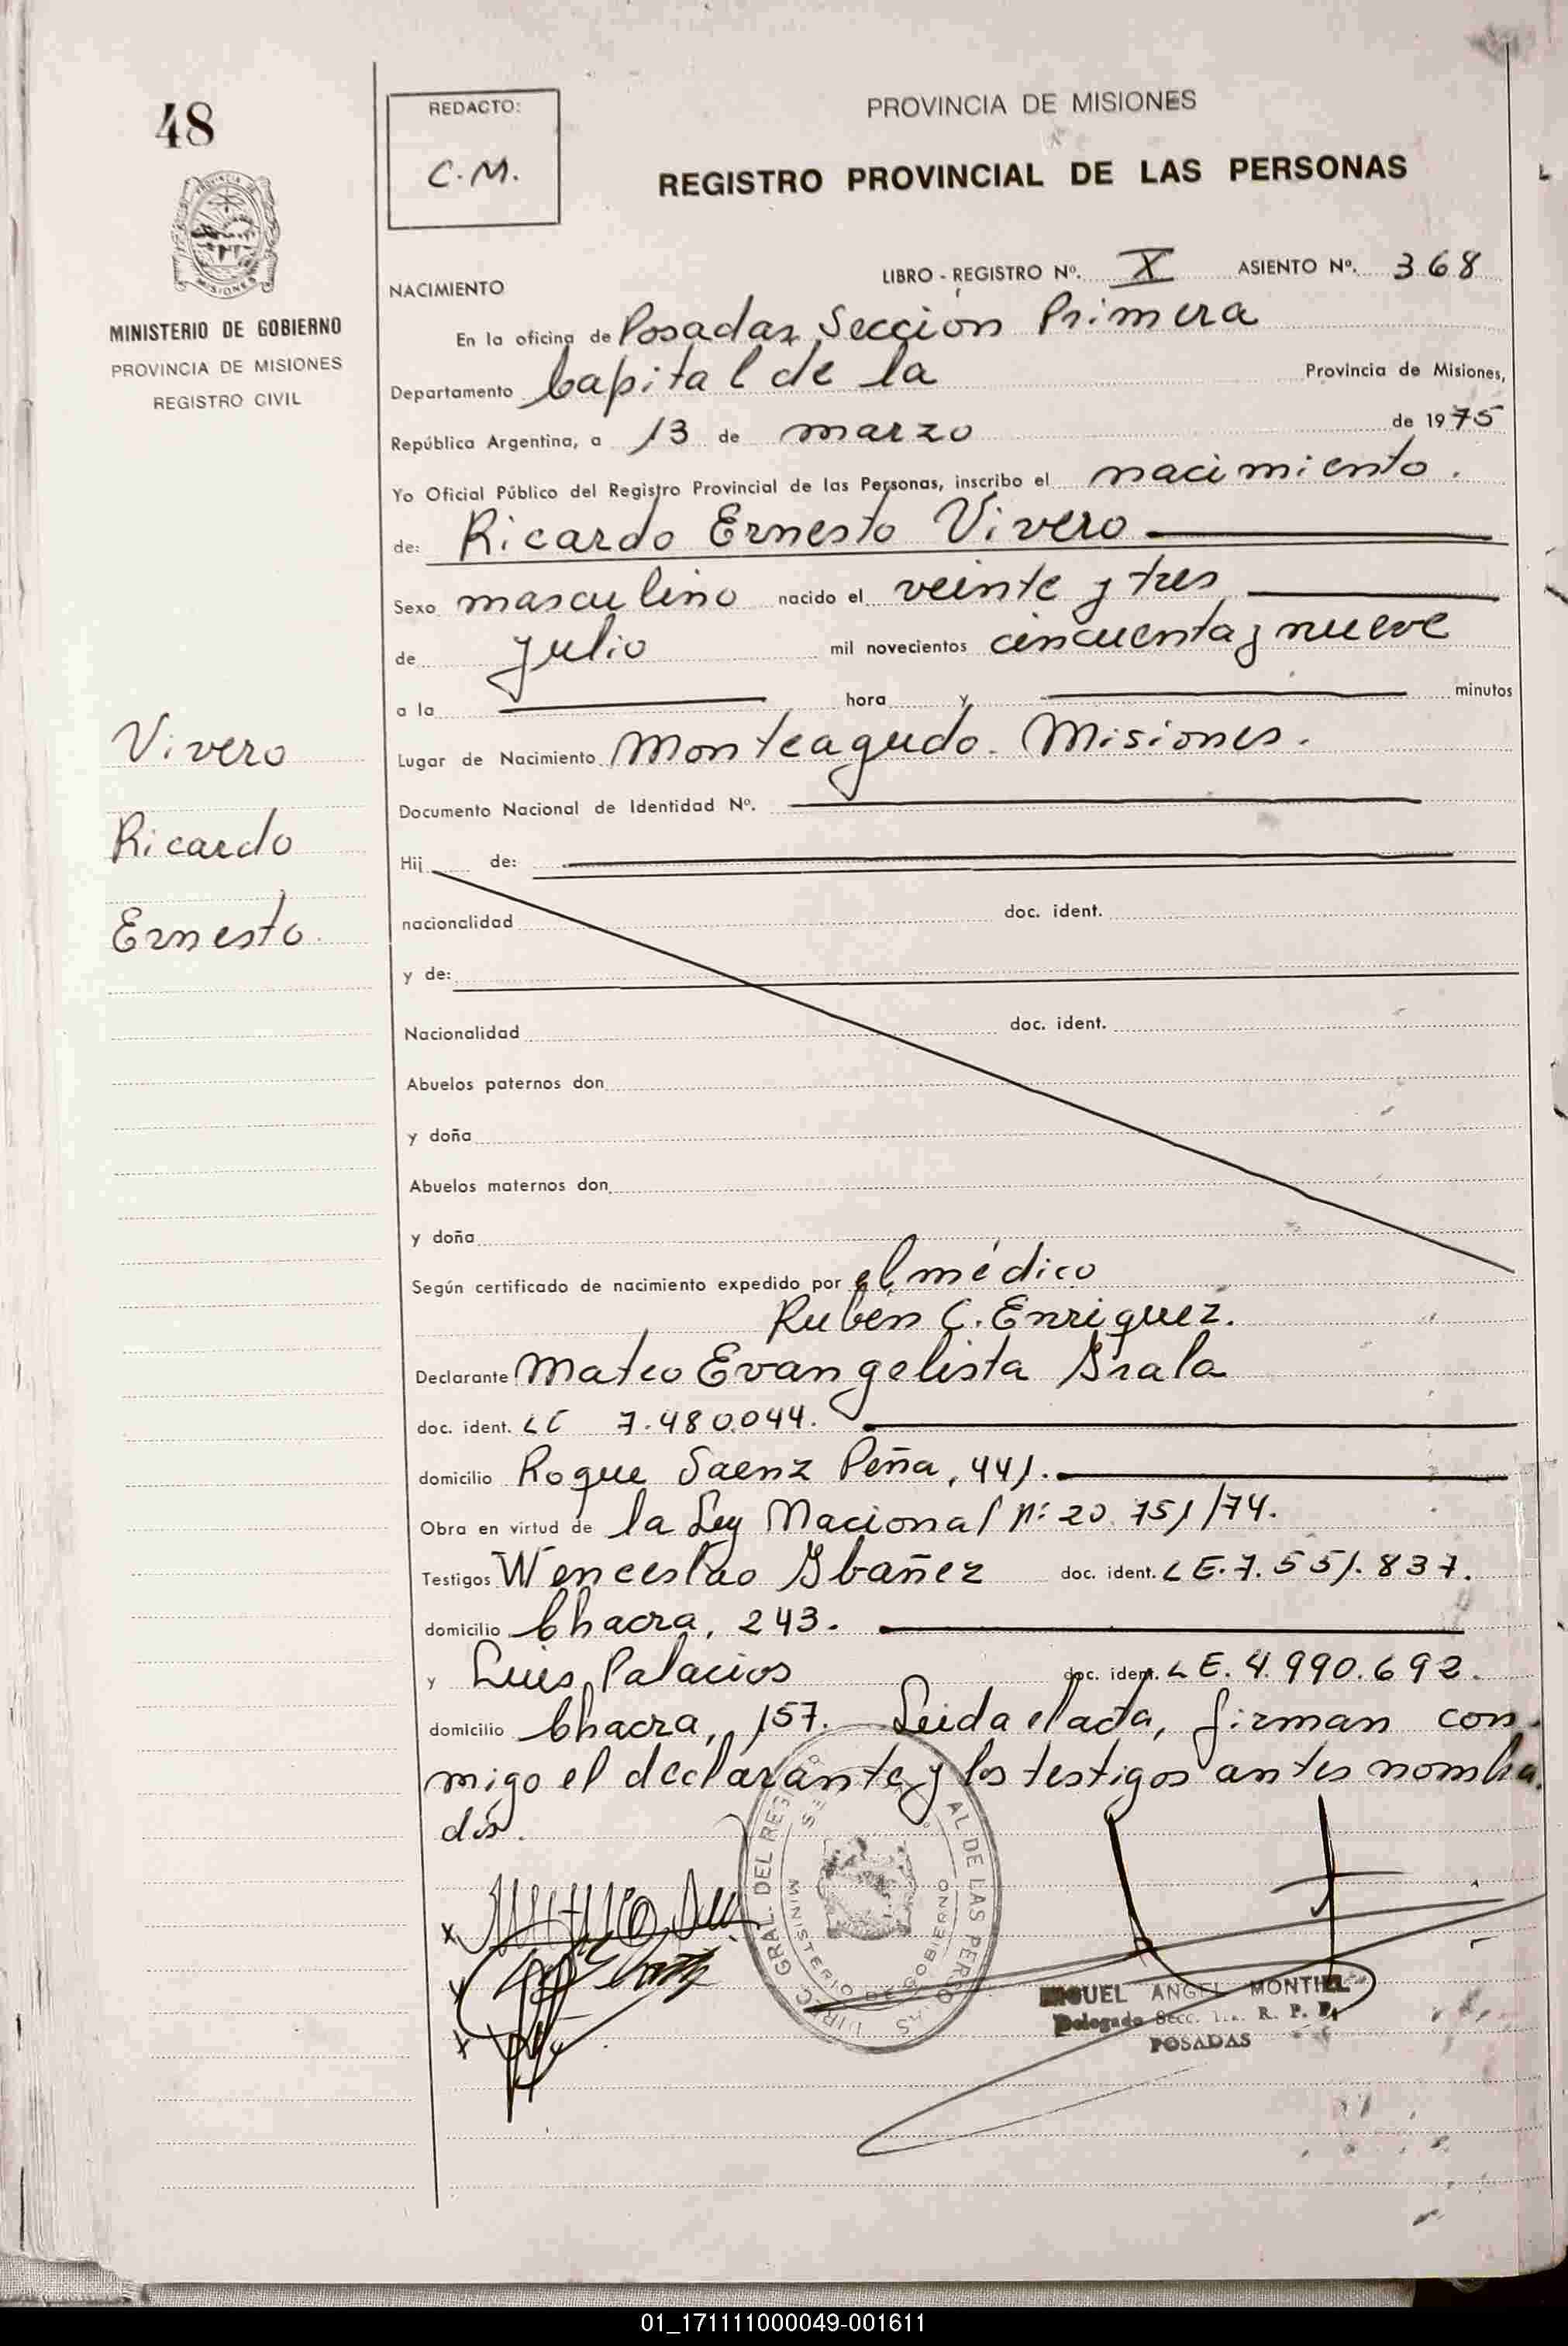 48
REDACTO:
C.M.
PROVINCIA DE MISIONES
REGISTRO PROVINCIAL DE LAS PERSONAS
PROVINCIA DE MISIONES
MINISTERIO DE GOBIERNO
PROVINCIA DE MISIONES
REGISTRO CIVIL
NACIMIENTO
LIBRO - REGISTRO Nº. X ASIENTO Nº. 368
En la oficina de Posadas, Sección Primera
Departamento Capital de la Provincia de Misiones,
República Argentina, a 13 de marzo de 1975
Yo Oficial Público del Registro Provincial de las Personas, inscribo el nacimiento.
de: Ricardo Ernesto Vivero
Sexo masculino nacido el veinte y tres
de julio mil novecientos cincuenta y nueve
a la hora y minutos
Lugar de Nacimiento Monteagudo. Misiones.
Documento Nacional de Identidad Nº.
Hij de:
nacionalidad doc. ident.
y de:
Nacionalidad doc. ident.
Abuelos paternos don
y doña
Abuelos maternos don
y doña
Vivero
Ricardo
Ernesto.
Según certificado de nacimiento expedido por el médico
Rubén C. Enriquez.
Declarante Mateo Evangelista Grala
doc. ident. LE 7.480.044.
domicilio Roque Saenz Peña, 441.
Obra en virtud de la Ley Nacional nº 20.751/74.
Testigos Wenceslao Ibañez doc. ident. LE. 7.551.837.
domicilio Chacra, 243.
y Luis Palacios doc. ident. LE. 4.990.692.
domicilio Chacra, 157. Leida el acta, firman con-
migo el declarante y los testigos antes nombra
dos.
MINISTERIO DE GOBIERNO
MIGUEL ANGEL MONTIEL
Delegado Secc. 1ra. R. P. P.
POSADAS
01_171111000049-001611